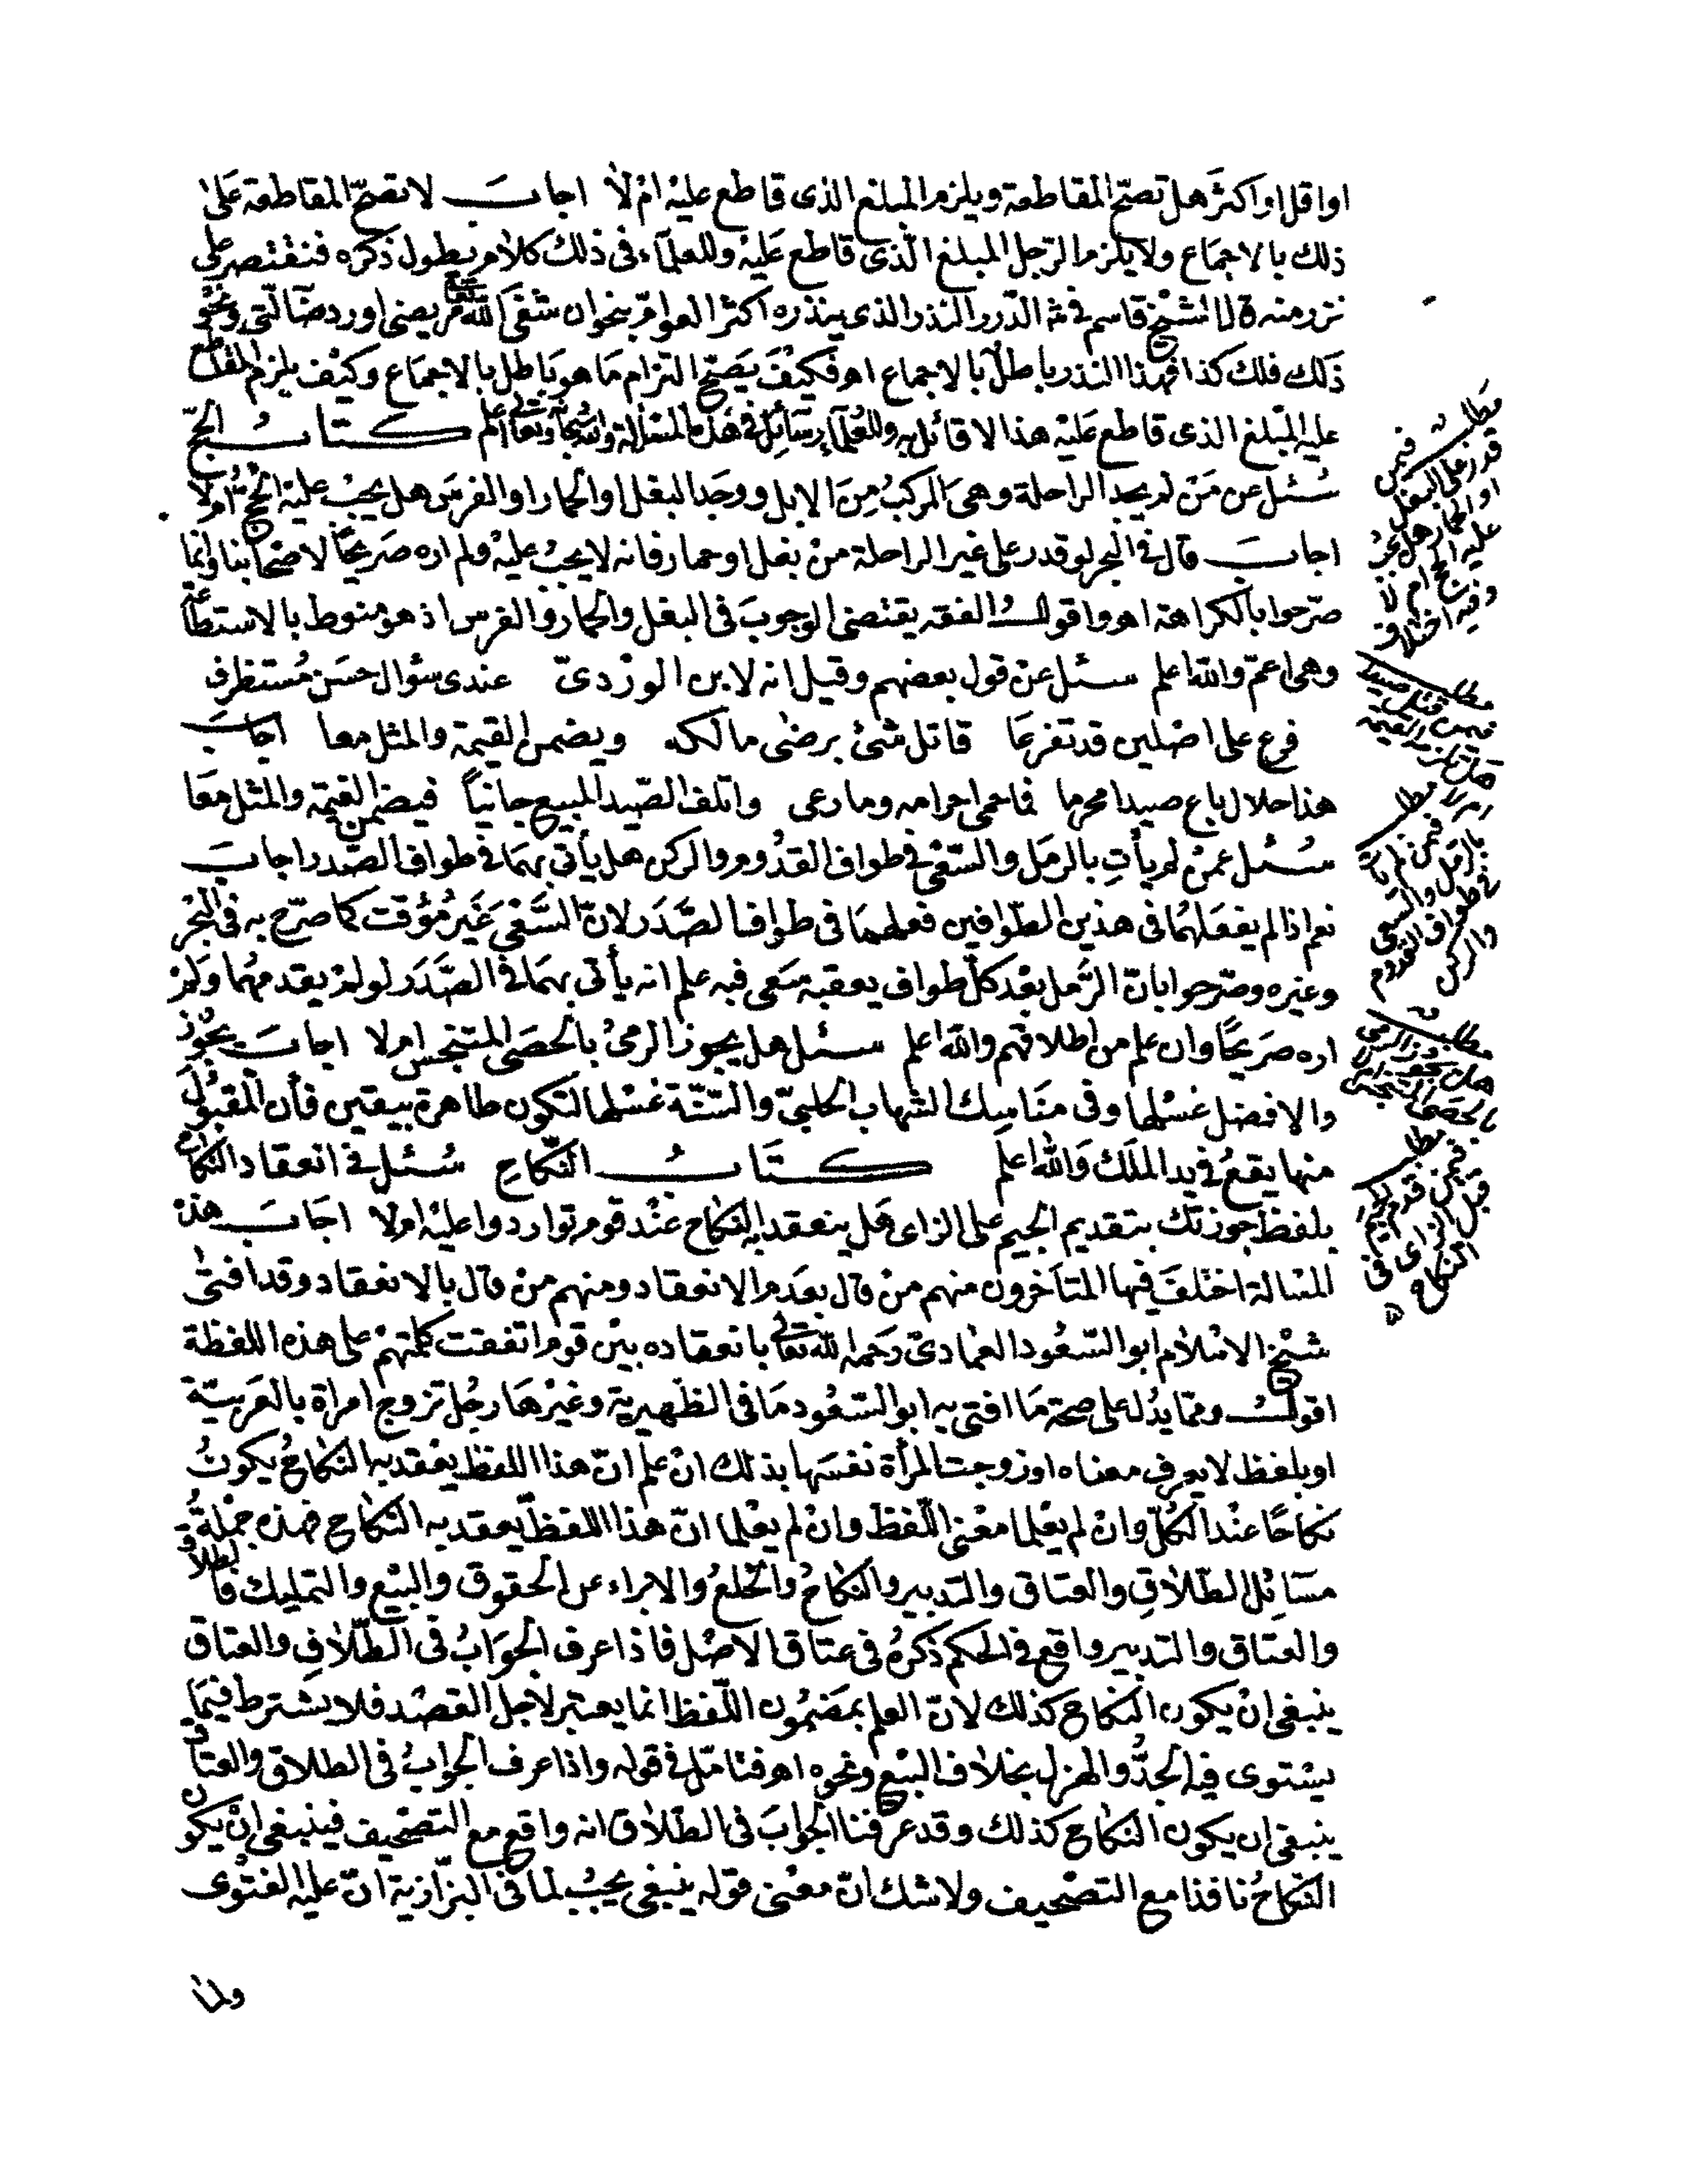 او اقل او اكثر هل تصح المقاطعة ويلزم المبلغ الذى قاطع عليه ام لا اجاب لا تصح المقاطعة على
ذلك بالاجماع ولا يلزم الرجل المبلغ الذى قاطع عليه وللعلماء فى ذلك كلام يطول ذكره فنقتصر على
نزر منه قال الشيخ قاسم فى شرح الدرر النذر الذى ينذره اكثر العوام بنحو ان شفى الله تعالى مريضى او رد ضالتى ونحو
ذلك فلك كذا فهذا النذر باطل بالاجماع اه فكيف يصح التزام ما هو باطل بالاجماع وكيف يلزم المقاطع
عليه المبلغ الذى قاطع عليه هذا لا قائل به وللعلماء رسائل فى هذه المسئلة والله سبحانه وتعالى اعلم كتاب الحج
سئل عن من لم يجد الراحلة وهى المركب من الابل ووجد البغل او الحمار او الفرس هل يجب عليه الحج ام لا
اجاب قال فى البحر لو قدر على غير الراحلة من بغل او حمار فانه لا يجب عليه ولم اره صريحا لاصحابنا وانما
صرحوا بالكراهة اه واقول الفقه يقتضى الوجوب فى البغل والحمار والفرس اذ هو منوط بالاستطاعة
وهى اعم والله اعلم سئل عن قول بعضهم وقيل انه لابن الوردى عندى سؤال حسن مستظرف
فرع على اصلين قد تفرعا قاتل شئ برضى مالكه ويضمن القيمة والمثل معا اجاب
هذا حلال باع صيدا محرما فاحمى احرامه وما رعى واتلف الصيد المبيع جانيا فيضمن القيمة والمثل معا
سئل عمن لم يأت بالرمل والسعى فى طواف القدوم والركن هل يأتى بهما فى طواف الصدر اجاب
نعم اذا لم يفعلهما فى هذين الطوافين فعلهما فى طواف الصدر لان السعى غير مؤقت كما صرح به فى البحر
وغيره وصرحوا بان الرمل بعد كل طواف يعقبه سعى فبه علم انه يأتى بهما فى الصدر لو لم يقدمهما ولم
اره صريحا وان علم من اطلاقهم والله اعلم سئل هل يجوز الرمى بالحصى المتنجس ام لا اجاب يجوز
والافضل غسلها وفى مناسك الشهاب الحلبى والسنة غسلها لتكون طاهرة بيقين فأن المقبول
منها يقع فى يد الملك والله اعلم كتاب النكاح سئل فى انعقاد النكاح
بلفظ جوزتك بتقديم الجيم على الزاى هل ينعقد به النكاح عند قوم تواردوا عليه ام لا اجاب هذه
المسالة اختلف فيها المتأخرون منهم من قال بعدم الانعقاد ومنهم من قال بالانعقاد وقد افتى
شيخ الاسلام ابو السعود العمادى رحمه الله تعالى بانعقاده بين قوم اتفقت كلمتهم على هذه اللفظة
اقول ومما يدل على صحة ما افتى به ابو السعود ما فى الظهيرية وغيرها رجل تزوج امراة بالعربية
او بلفظ لا يعرف معناه او زوجت المرأة نفسها بذلك ان علم ان هذا اللفظ يعقد به النكاح يكون
نكاحا عند الكل وان لم يعلما معنى اللفظ وان لم يعلما ان هذا اللفظ يعقد به النكاح فهذه جملة
مسائل الطلاق والعتاق والتدبير والنكاح والخلع والابراء عن الحقوق والبيع والتمليك فالطلاق
والعتاق والتدبير واقع فى الحكم ذكره فى عتاق الاصل فاذا عرف الجواب فى الطلاق والعتاق
ينبغى ان يكون النكاح كذلك لان العلم بمضمون اللفظ انما يعتبر لاجل القصد فلا يشترط فيما
يستوى فيه الجد والهزل بخلاف البيع ونحوه اه فتامل فى قوله واذا عرف الجواب فى الطلاق والعتاق
ينبغى ان يكون النكاح كذلك وقد عرفنا الجواب فى الطلاق انه واقع مع التصحيف فينبغى ان يكون
النكاح نافذا مع التصحيف ولا شك ان معنى قوله ينبغى يجب لما فى البزازية ان عليه الفتوى
ولنا
مطلب فيمن
قدر على البغل
او الحمار هل يجب
عليه الحج ام لا
وفيه اختلاف
مطلب
فيمن قتل صيدا
هل تلزمه القيمة
مطلب
فيمن لم يأت
بالرمل والسعى
فى طواف القدوم
والركن
مطلب
هل يجوز الرمى
بالحصى المتنجس
مطلب
فيمن قدم الجيم
قبل الزاى فى
النكاح